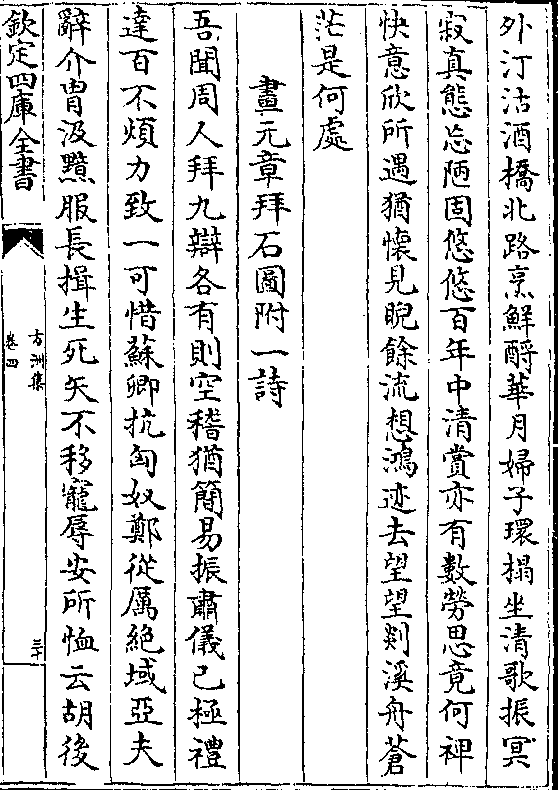 外汀沽酒橋北路烹鮮酹華月婦子環榻坐清歌振冥
寂真態忘陋固悠悠百年中清賞亦有數勞思竟何裨
快意欣所遇猶懷見睨餘流想鴻迹去望望剡溪舟蒼
茫是何處
畫元章拜石圖附一詩
吾聞周人拜九辯各有則空稽猶簡易振肅儀已極禮
達百不煩力致一可惜蘇卿抗匈奴鄭從厲絶域亞夫
辭介胄汲黯服長揖生死矢不移寵辱安所恤云胡後
欽定四庫全書
方洲集
卷四
三十